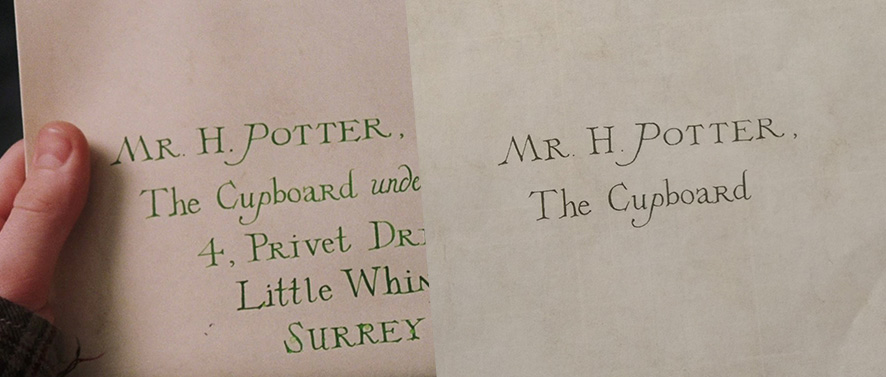 MR. H. POTTER,
The Cupboard unde
4, Privet DRI
Little Whin
SURREY
MR. H. POTTER,
The Cupboard